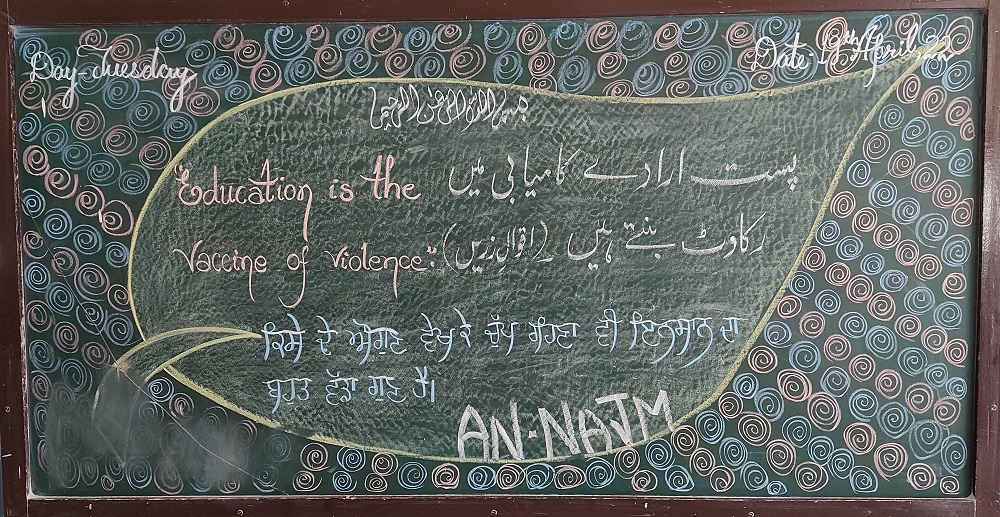 Day-Tuesday
Date 19th April, 22
بسم اللہ الرحمن الرحیم
Education is the
Vaccine of violence:
پست ارادے کامیابی میں
رکاوٹ بنتے ہیں (اقوالِ زریں)
ਕਿਸੇ ਦੇ ਔਗੁਣ ਵੇਖ ਕੇ ਚੁੱਪ ਰਹਿਣਾ ਵੀ ਇਨਸਾਨ ਦਾ
ਬਹੁਤ ਵੱਡਾ ਗੁਣ ਹੈ।
AN-NAJM